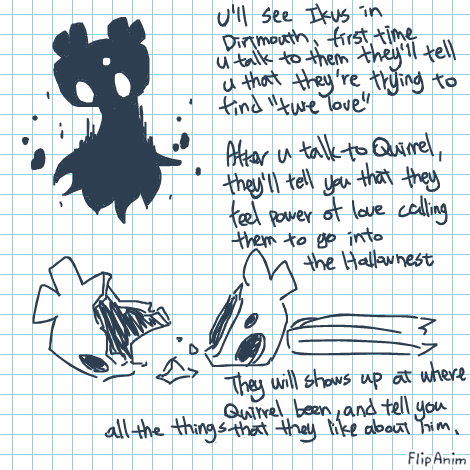 U'll see Ikus in
Dirtmouth, first time
u talk to them they'll tell
u that they're trying to
find "ture love"
After u talk to Quirrel,
they'll tell you that they
feel power of love calling
them to go into
the Hallownest
They will shows up at where
Quirrel been, and tell you
all the things that they like about him.
FlipAnim